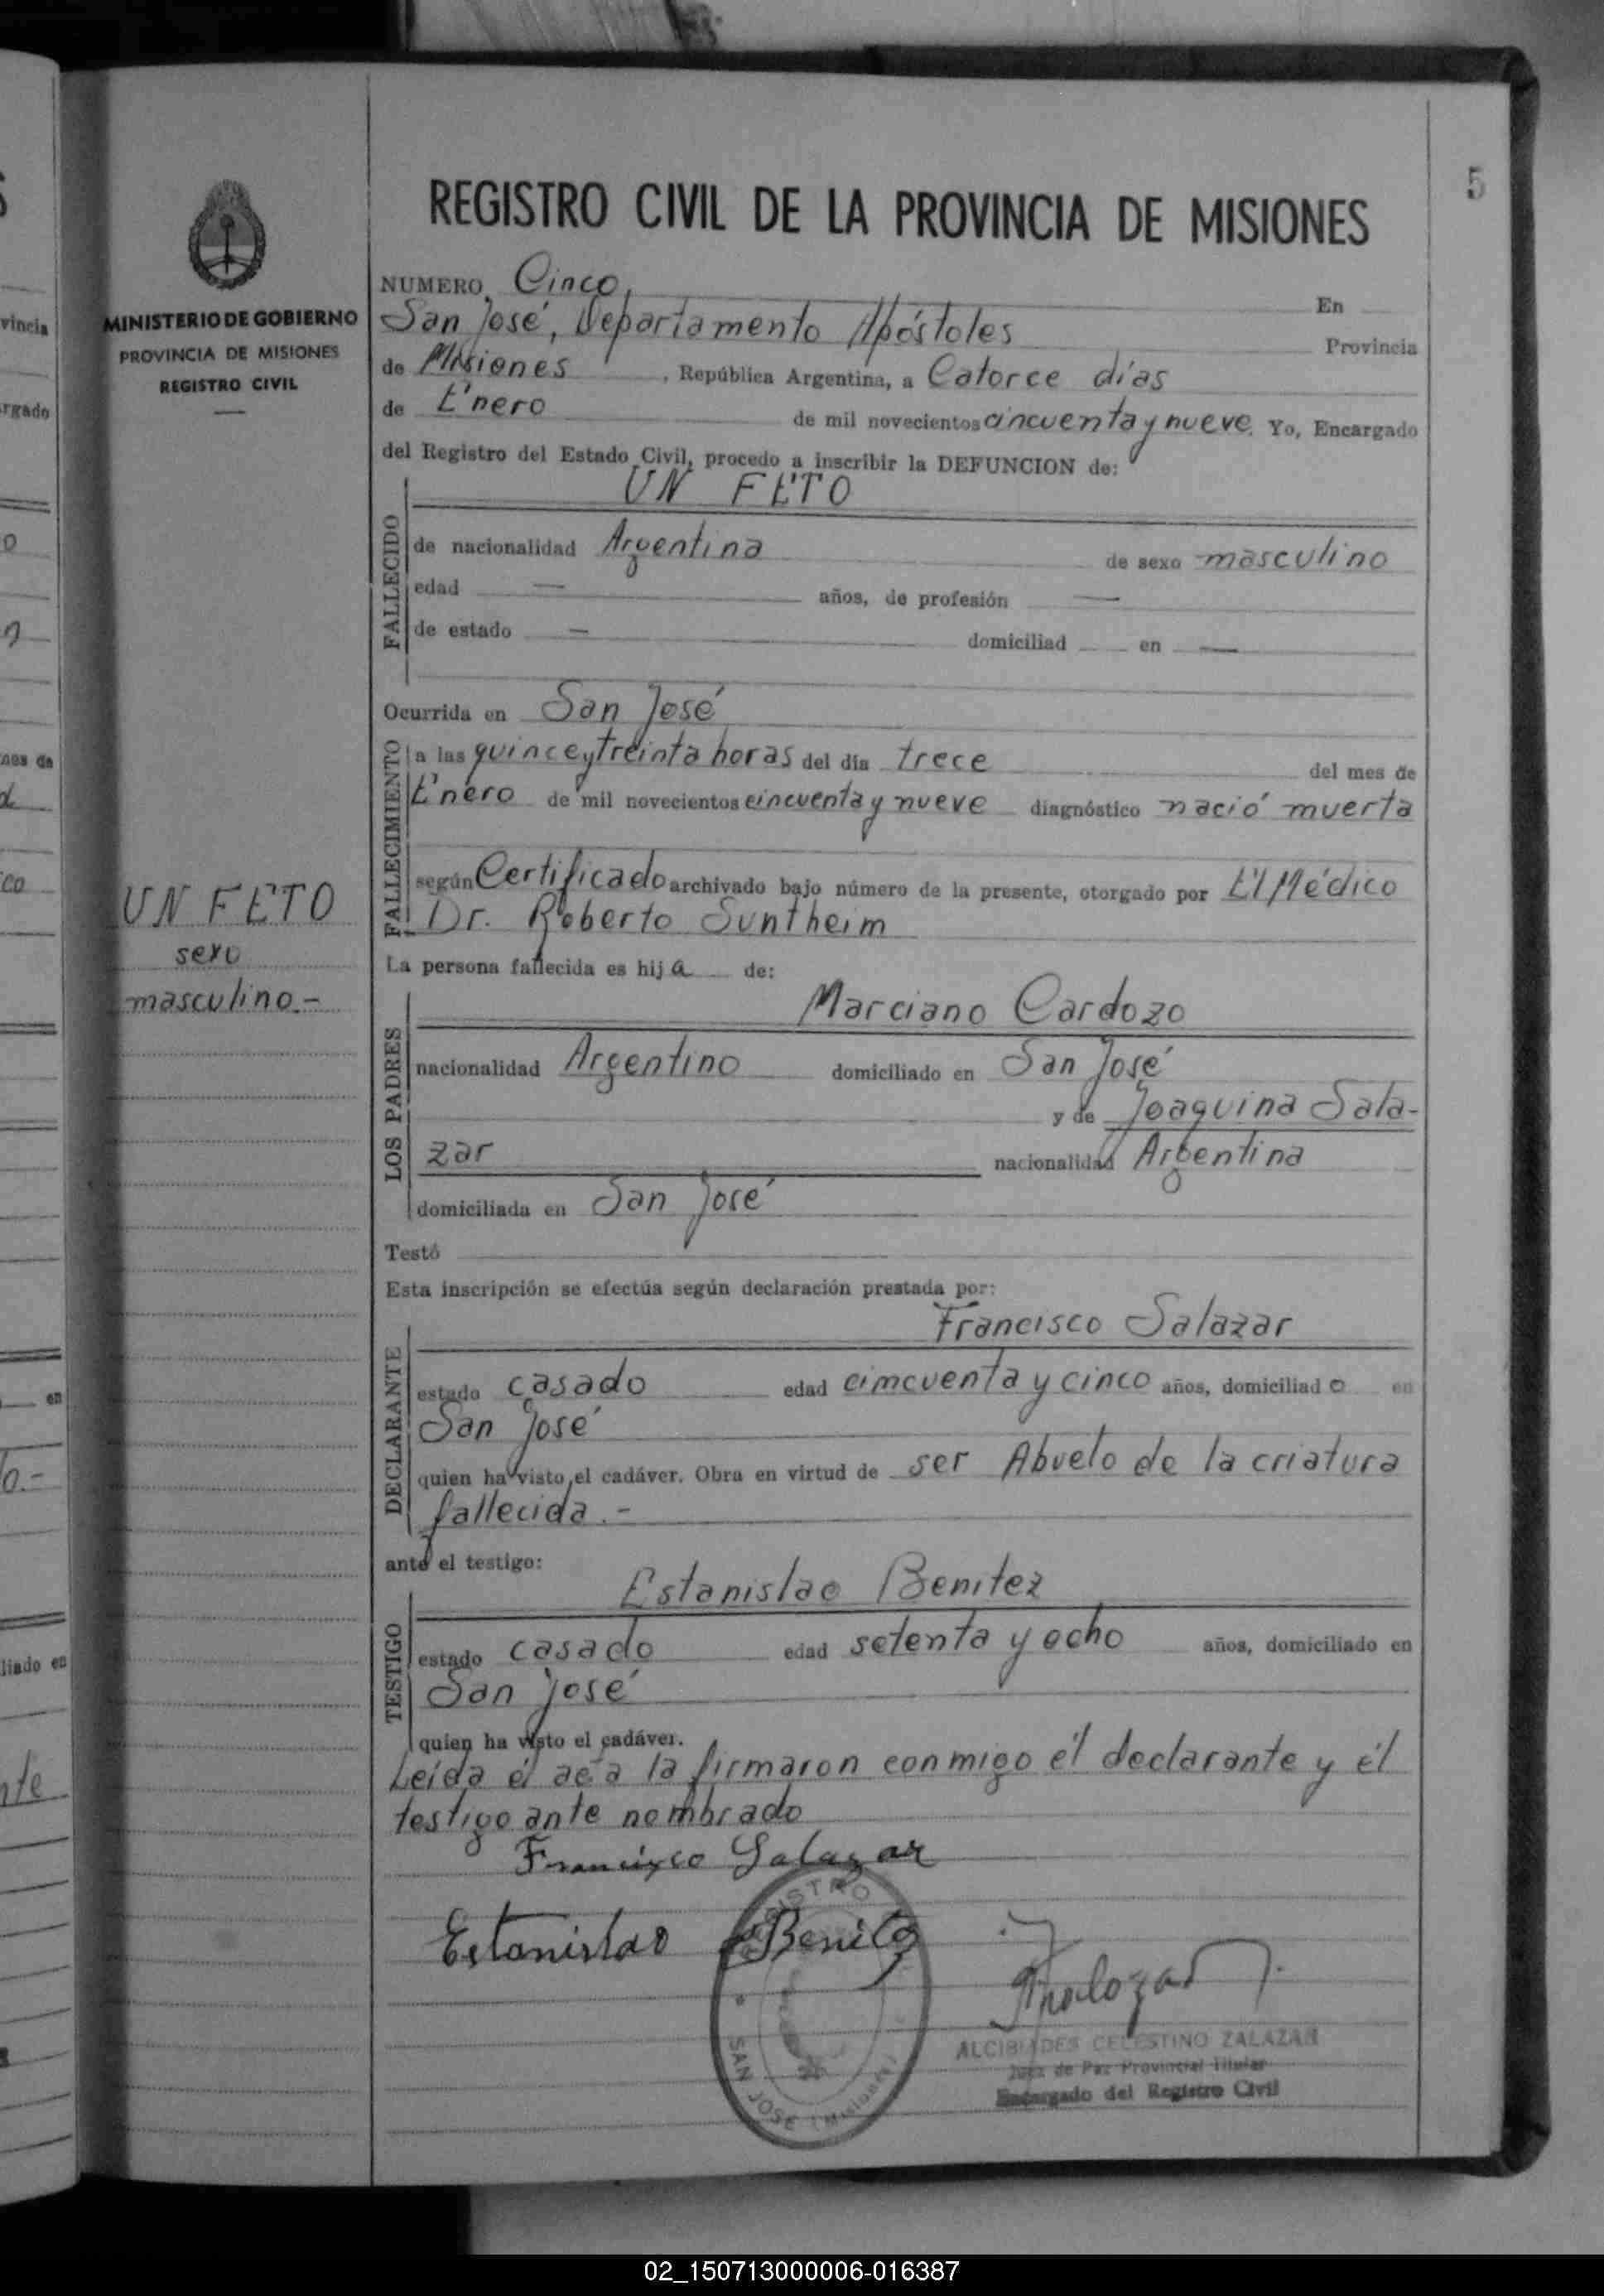 5
REGISTRO CIVIL DE LA PROVINCIA DE MISIONES
MINISTERIO DE GOBIERNO
PROVINCIA DE MISIONES
REGISTRO CIVIL
NUMERO Cinco, En
San José, Departamento Apóstoles Provincia
de Misiones, República Argentina, a Catorce días
de Enero de mil novecientos cincuenta y nueve. Yo, Encargado
del Registro del Estado Civil, procedo a inscribir la DEFUNCION de:
UN FETO
FALLECIDO
de nacionalidad Argentina de sexo masculino
edad — años, de profesión —
de estado — domiciliad en —
Ocurrida en San José
FALLECIMIENTO
a las quince y treinta horas del día trece del mes de
Enero de mil novecientos cincuenta y nueve diagnóstico nació muerta
según Certificado archivado bajo número de la presente, otorgado por El Médico
Dr. Roberto Suntheim
UN FETO
sexo
masculino.-
La persona fallecida es hij a de:
Marciano Cardozo
LOS PADRES
nacionalidad Argentino domiciliado en San José
y de Joaquina Sala-
zar nacionalidad Argentina
domiciliada en San José
Testó
Esta inscripción se efectúa según declaración prestada por:
Francisco Salazar
DECLARANTE
estado casado edad cimcuenta y cinco años, domiciliad o en
San José
quien ha visto el cadáver. Obra en virtud de ser Abuelo de la criatura
fallecida.-
ante el testigo:
Estanislao Benitez
TESTIGO
estado casado edad setenta y ocho años, domiciliado en
San José
quien ha visto el cadáver.
Leída él la firmaron conmigo él declarante y él
testigo ante nombrado
Francisco Salazar
Estanislao Benitez
REGISTRO
SAN JOSE (Misiones)
ALCIBIADES CELESTINO ZALAZAR
Juez de Paz Provincial Titular
Encargado del Registro Civil
vincia
rgado
nes de
co
en
o.-
liado en
nte
02_150713000006-016387